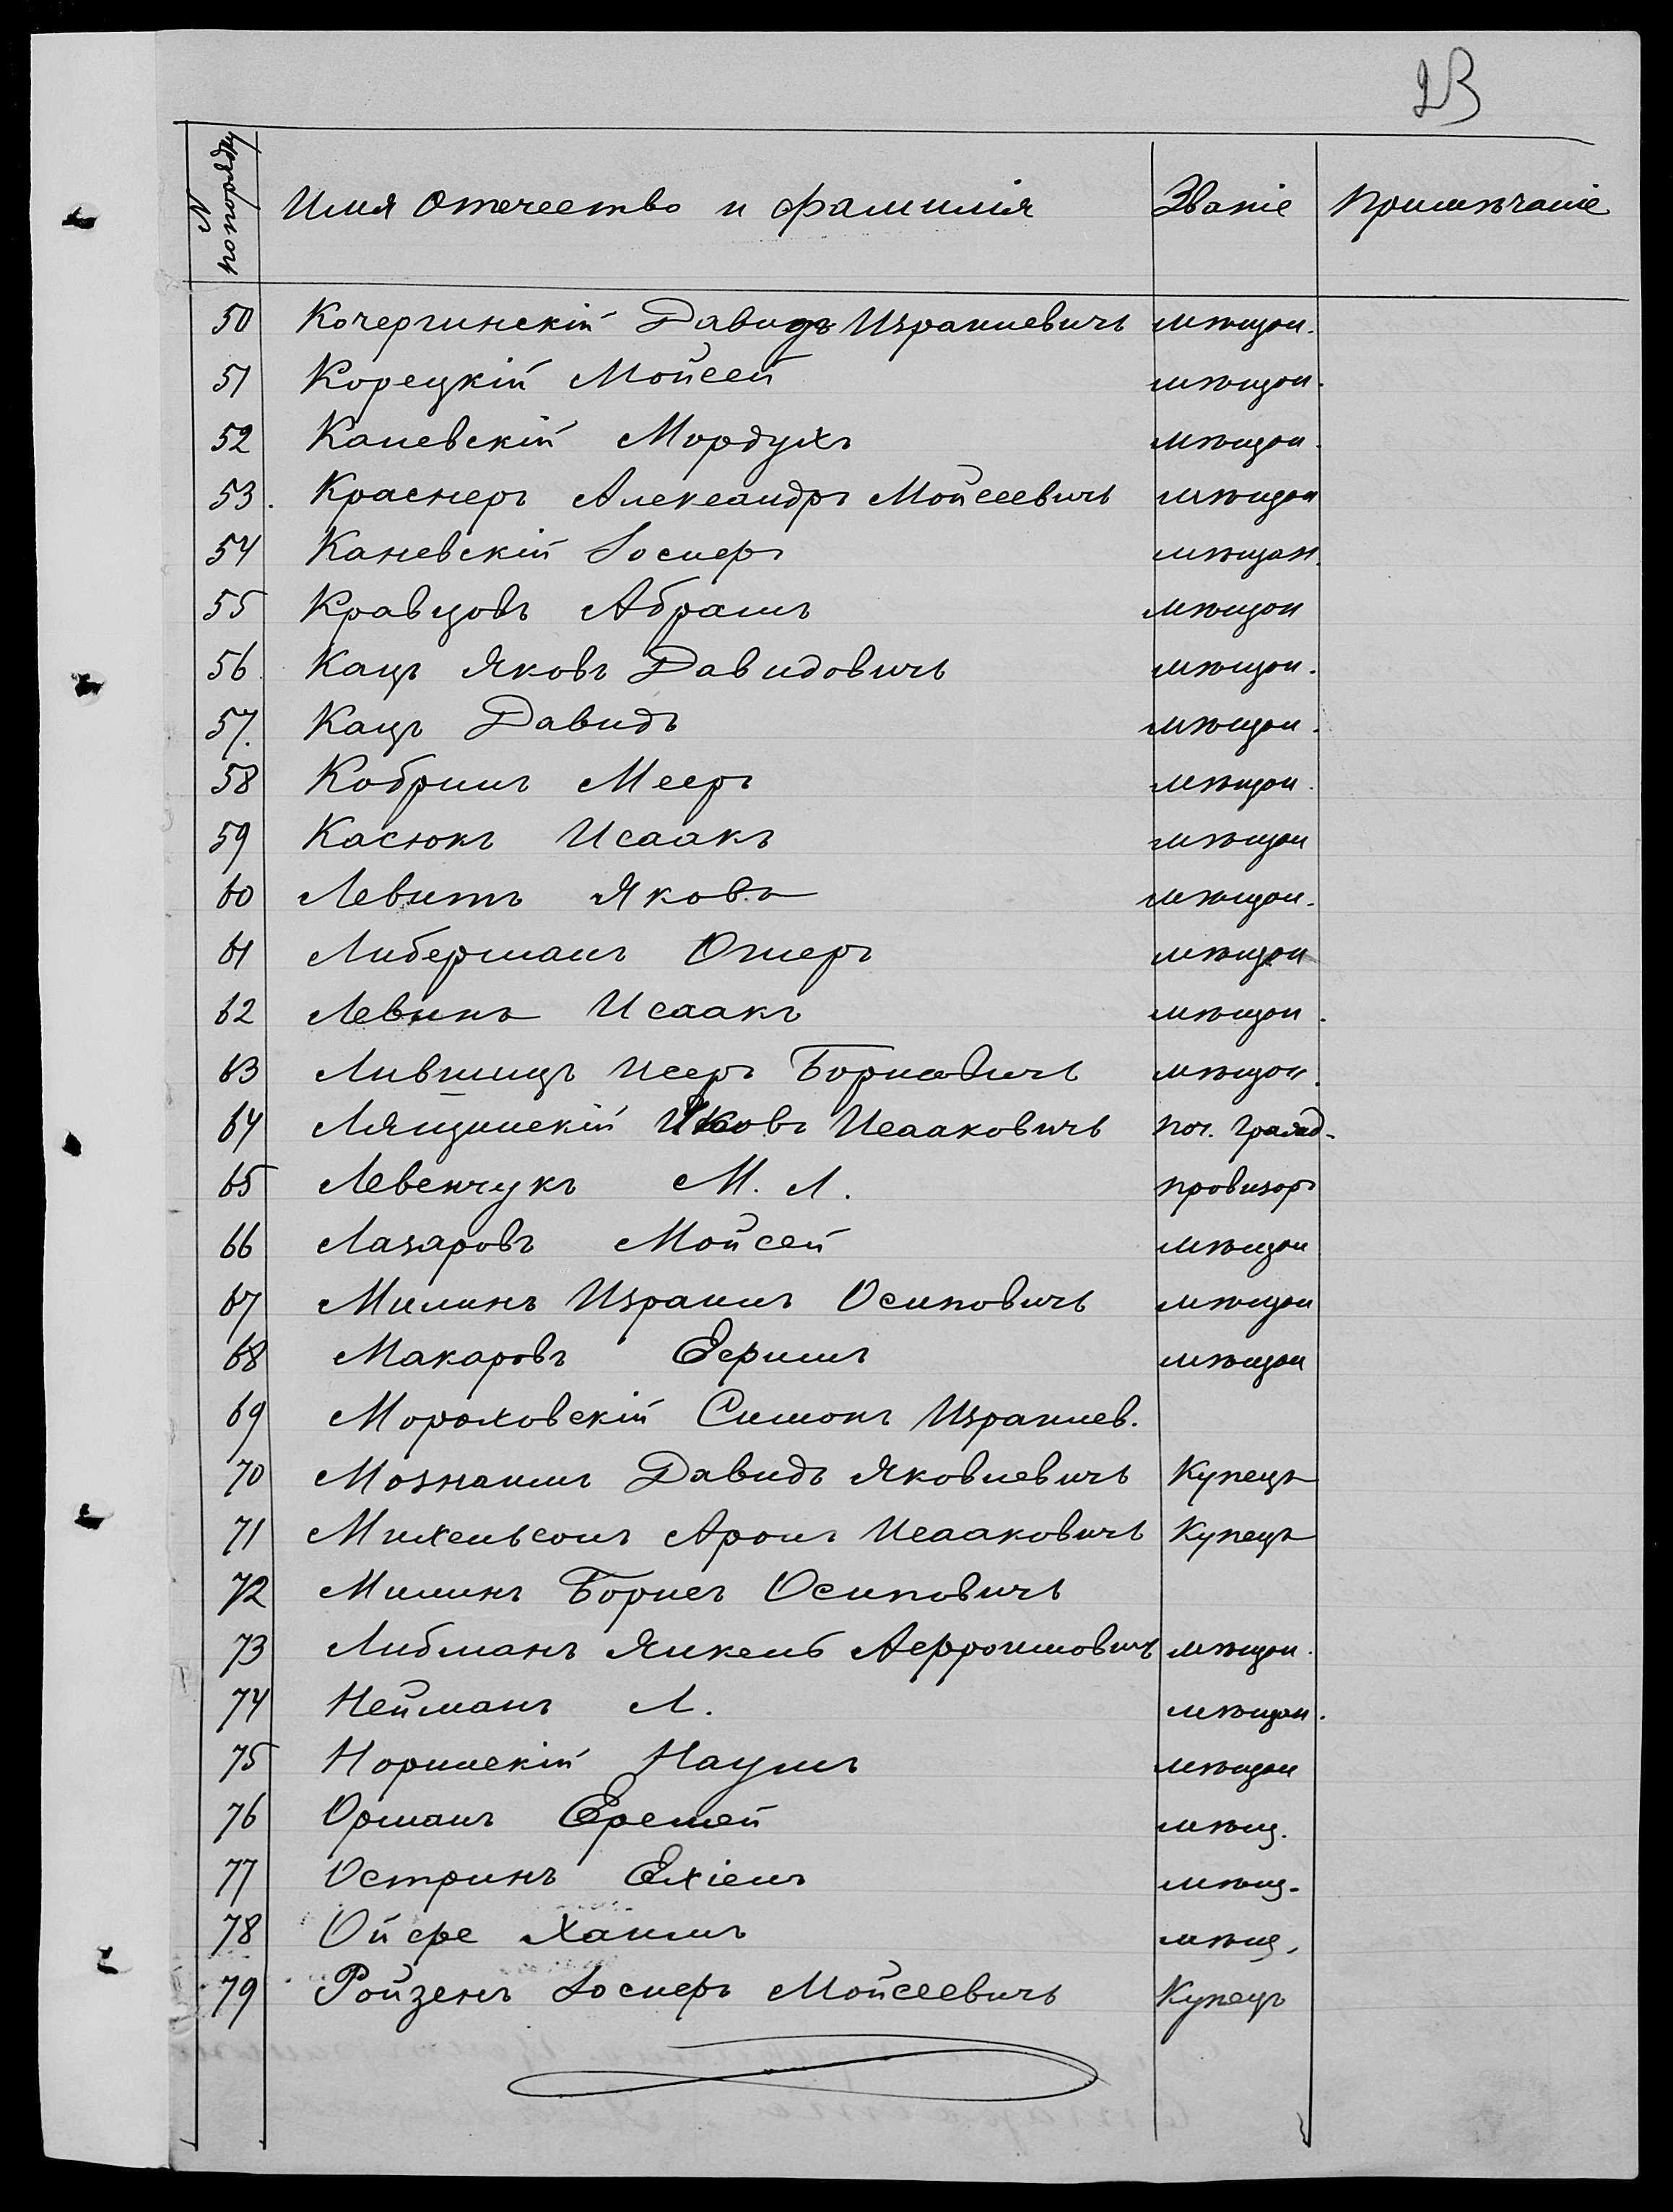 23
N попорядку Имя Отечество и фамилія Званіе Примѣчаніе
50 Кочергинскій Давидъ Израилевичъ мѣщан.
51 Корецкій Мойсей мѣщан.
52 Каневскій Мордухъ мѣщан.
53. Краснеръ Александръ Мойсеевичъ мѣщан
54 Каневскій Іосифъ мѣщан.
55 Кравцовъ Абрамъ мѣщан
56. Кацъ Яковъ Давидовичъ мѣщан.
57. Кацъ Давидъ мѣщан.
58 Кобринъ Мееръ мѣщан.
59 Касюкъ Исаакъ мѣщан
60 Левитъ Яковъ мѣщан.
61 Либерманъ Ошеръ мѣщан
62 Левинъ Исаакъ мѣщан.
63 Лившицъ Исеръ Борисовичъ мѣщан.
64 Лящинскій Яковъ Исааковичъ поч. гражд.
65 Левенчукъ М. Л. провизоръ
66 Лазаровъ Мойсей мѣщан
67 Милинъ Израиль Осиповичъ мѣщан
68 Макаровъ Ефимъ мѣщан
69 Мороховскій Симонъ Израилев.
70 Мознаимъ Давидъ Яковлевичъ Купецъ
71 Михельсонъ Аронъ Исааковичъ Купецъ
72 Милинъ Борисъ Осиповичъ
73 Либманъ Янкель Афроимовичъ мѣщан.
74 Нейманъ Л. мѣщан.
75 Норинскій Наумъ мѣщан
76 Орманъ Еремей мѣщ.
77 Остринъ Ехіель мѣщ.
78 Ойфе Хаимъ мѣщ.
79 Ройзенъ Іосифъ Мойсеевичъ Купецъ